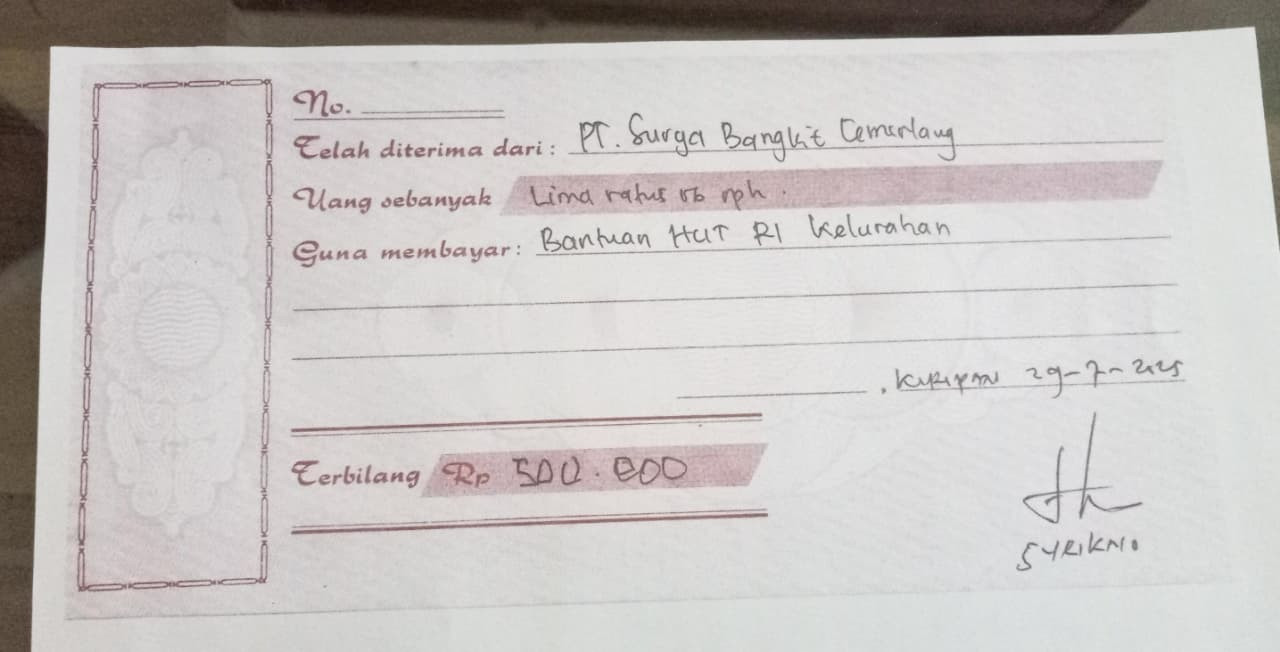 No.
Telah diterima dari : PT. Surga Bangkit Cemerlang
Uang sebanyak Lima ratus rb rph.
Guna membayar : Bantuan HUT RI Kelurahan
, 29-7-2025
Terbilang Rp 500.000